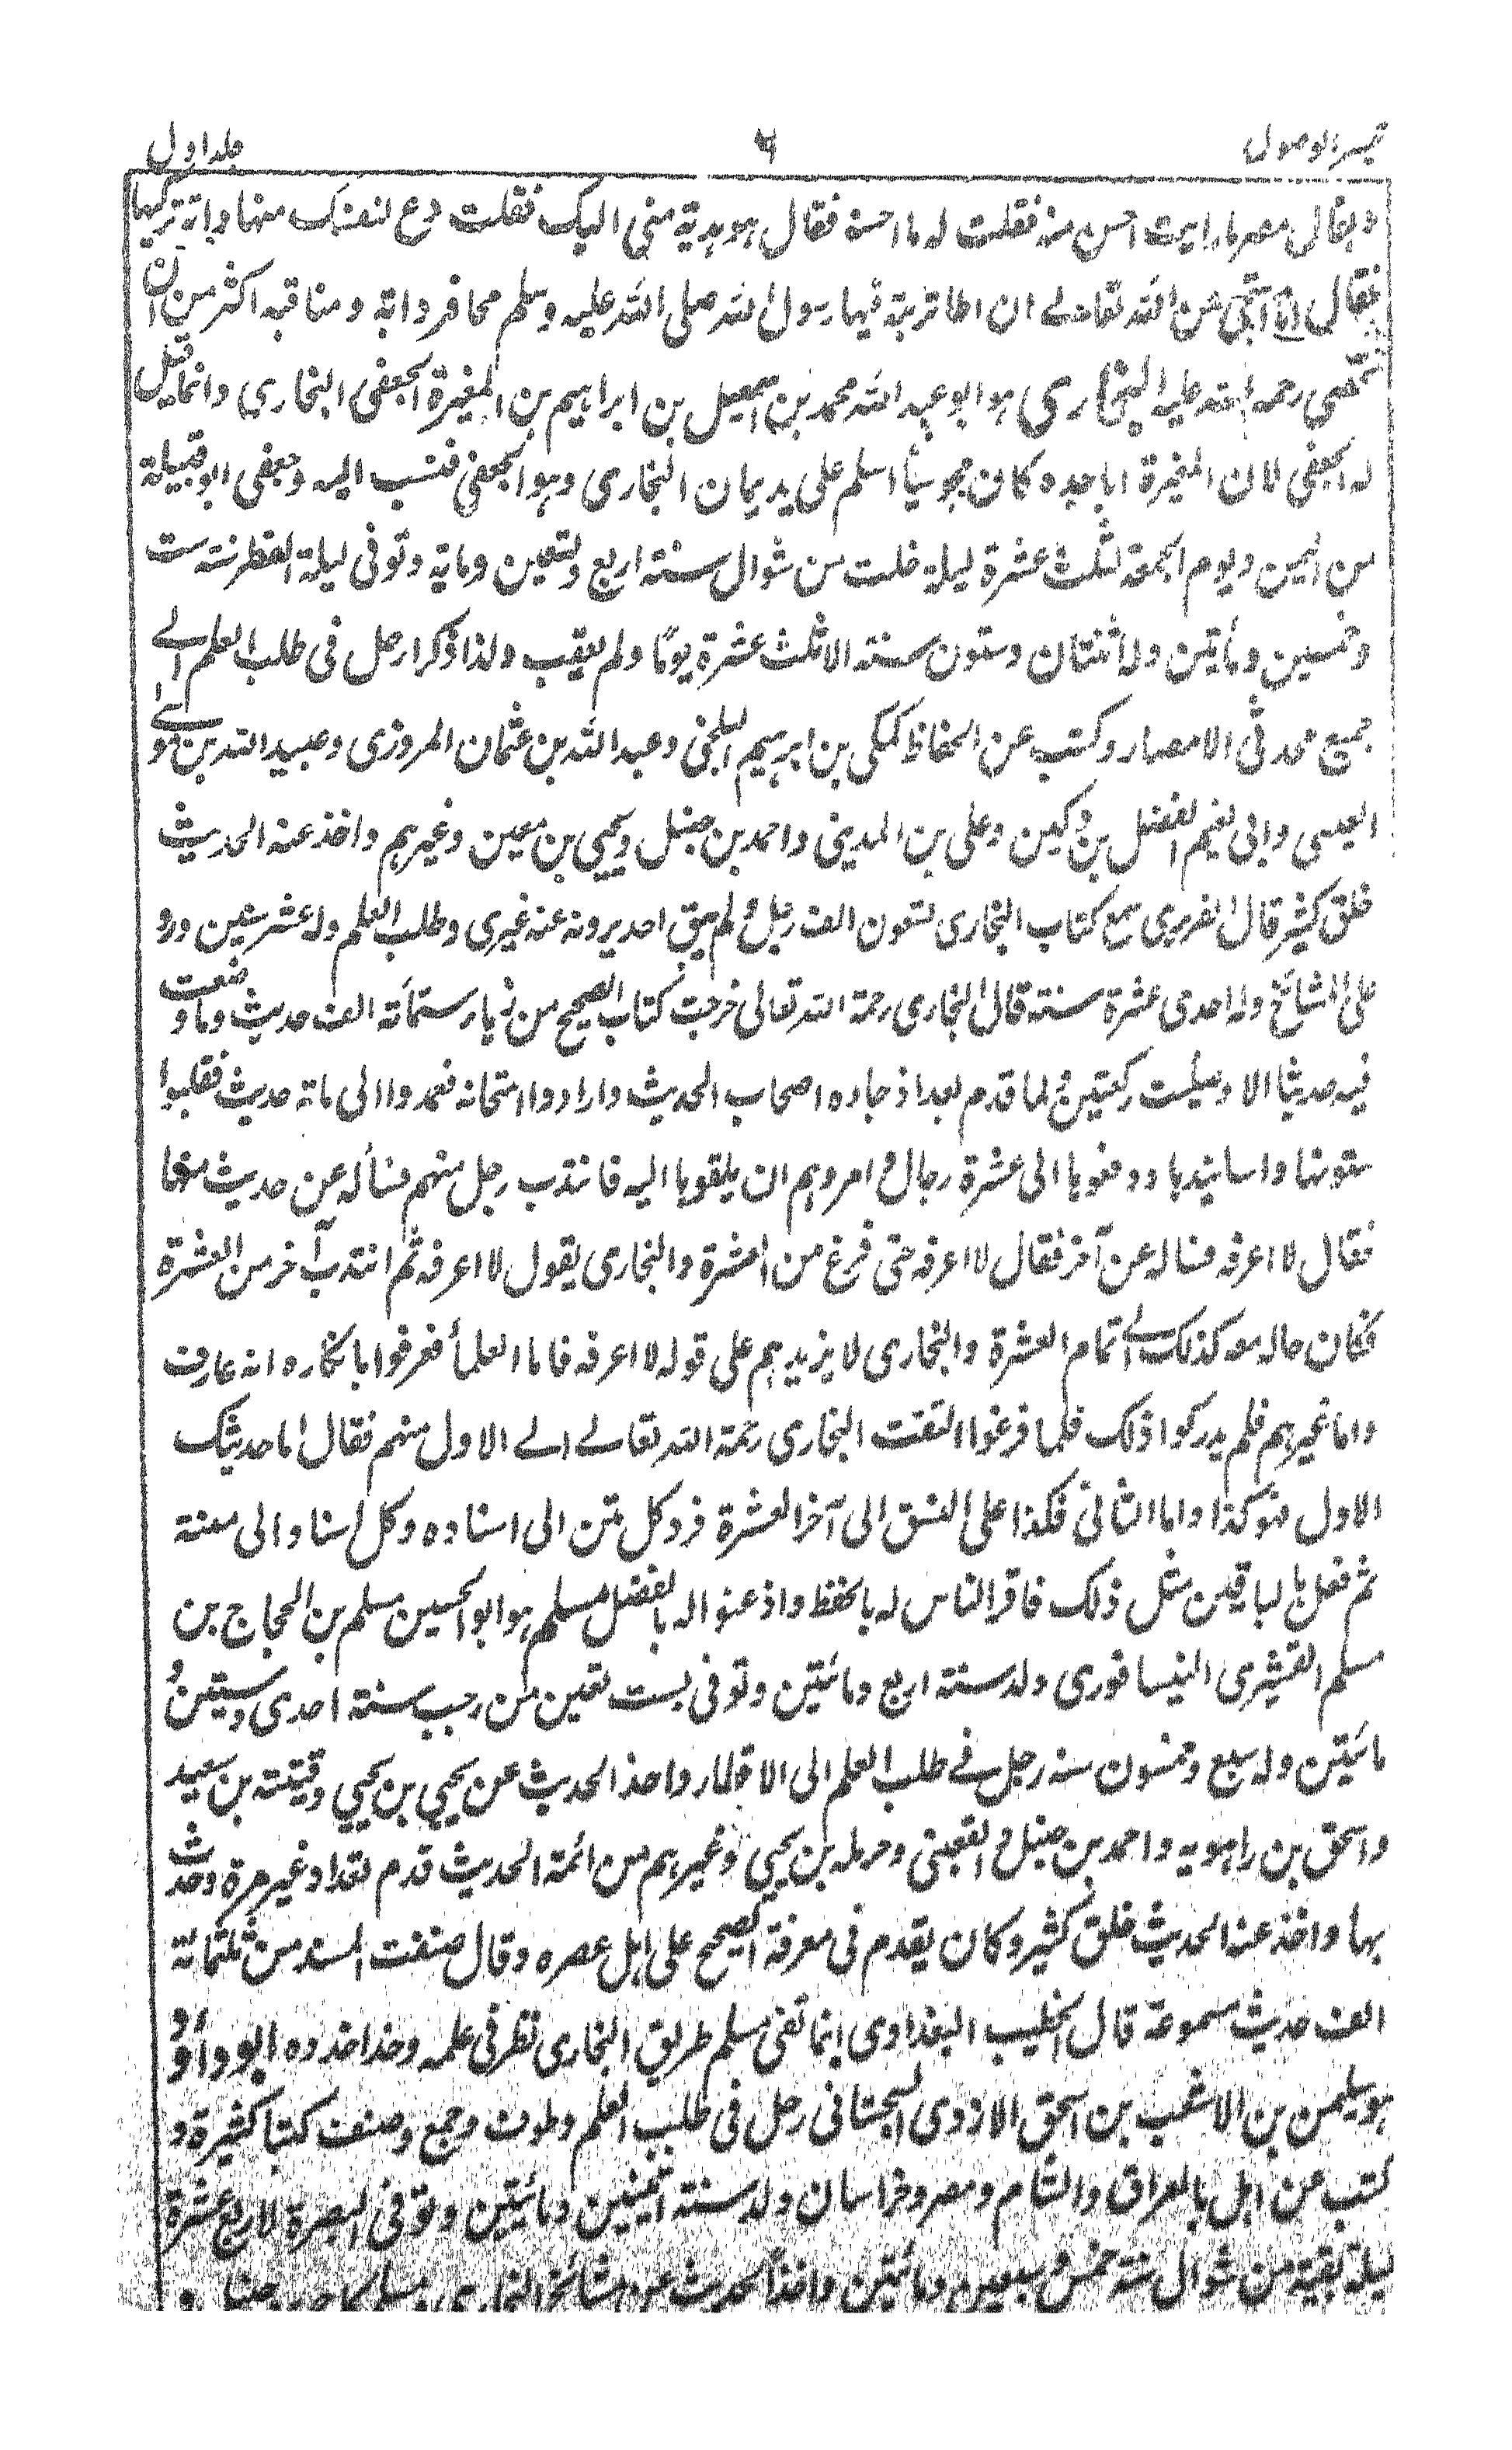 تيسير الوصول ٦ جلد اول
وبغال مصر ما رايت احسن منه فقلت له ما احسنه فقال هو هدية منى اليك فقلت دع لنفسك منها دابة تركبها
فقال انا استحيى من الله تعالى ان اطا تربة فيها رسول الله صلى الله عليه وسلم بحافر دابة ومناقبه اكثر من ان
تحصى رحمه الله عليه البخارى هو ابو عبد الله محمد بن اسمعيل بن ابراهيم بن المغيرة الجعفى البخاري وانما قيل
له الجعفى لان المغيرة ابا جده كان مجوسيا اسلم على يد يمان البخارى وهو الجعفى فنسب اليه وجعفى ابو قبيلة
من اليمن ويوم الجمعة لثلث عشرة ليلة خلت من شوال سنة اربع وتسعين ومایة وتوفى ليلة الفطر سنة ست
وخمسين ومأتين وله اثنتان وستون سنة الا ثلث عشرة يومًا ولم يعقب ولدا ذكرا رحل فى طلب العلم الے
جميع محدثى الامصار وكتب عن الحفاظ كمكى بن ابرهيم البلخى وعبد الله بن عثمان المروزى وعبيد الله بن موسے
العبسى وابى نعيم الفضل بن دكين وعلى بن المدينى واحمد بن حنبل ويحيى بن معين وغيرهم واخذ عنه الحديث
خلق كثير قال الفربرى سمع كتاب البخارى تسعون الف رجل ولم يبق احد يرويه عنه غيرى وطلب العلم وله عشر سنين ورد
على المشائخ وله احدى عشرة سنة قال البخارى رحمة الله تعالى خرجت كتاب الصحيح من زہاء ستمأتة الف حديث وما وضعت
فيه حديثا الا وصليت ركعتين ولما قدم بغداد جاءه اصحاب الحديث وارادوا امتحانه فعمدوا الى ماتة حديث فقلبوا
متونها واسانيدها ودفعوها الى عشرة رجال وامروهم ان يلقوها اليه فانتدب رجل منهم فسأله عن حديث منها
فقال لا اعرفه فساله عن آخر فقال لا اعرفه حتى فرغ من العشرة والبخارى يقول لا اعرفه ثم انتدب آخر من العشرة
فكان حاله معه كذلك الے تمام العشرة والبخارى لا يزيدهم على قوله لا اعرفه فاما العلمأ فعرفوا بانكاره انه عارف
واما غيرهم فلم يدركوا ذلك فلما فرغوا التفت البخارى رحمة الله تعالے الے الاول منهم فقال اما حديثك
الاول فهو كذا واما الثانى فكذا على النسق الى آخر العشرة فرد كل متن الى اسناده وكل اسناد الى متنه
ثم فعل بالباقين مثل ذلك فاقر الناس له بالحفظ واذعنوا له بالفضل مسلم هو ابو الحسين مسلم بن الحجاج بن
مسلم القشيرى النيسافورى ولد سنة اربع ومائتين وتوفى لست بقين من رجب سنة احدى وستين و
مائتين وله سبع وخمسون سنه رحل فے طلب العلم الى الاقطار واخذ الحديث عن يحيى بن يحيي وقتيبة بن سعيد
واسحق بن راهويه واحمد بن حنبل والقعبنى وحرمله بن يحيى وغيرهم من ائمة الحديث قدم بغداد غير مرة وحدث
بها واخذ عنه الحديث خلق كثير وكان يقدم فى معرفة الصحيح على اهل عصره وقال صنفت المسند من ثلثمائة
الف حديث مسموعة قال الخطيب البغدادى انما قفى مسلم طريق البخارى نظر فى علمه وحذا حذوه ابو داؤد
هو سليمن بن الاشعث بن اسحق الازدى السجستانى رحل فى طلب العلم وطوف وجمع وصنف كتبا كثيرة و
كتب عن اهل بالعراق والشام ومصر وخراسان ولد سنة اثنين ومائتين وتوفى البصرة لاربع عشرة
ليلة بقية من شوال سنة خمس وسبعين ومائتين واخذ الحديث عن مشائخ البخارى ومسلم كاحمد بن حنبل و